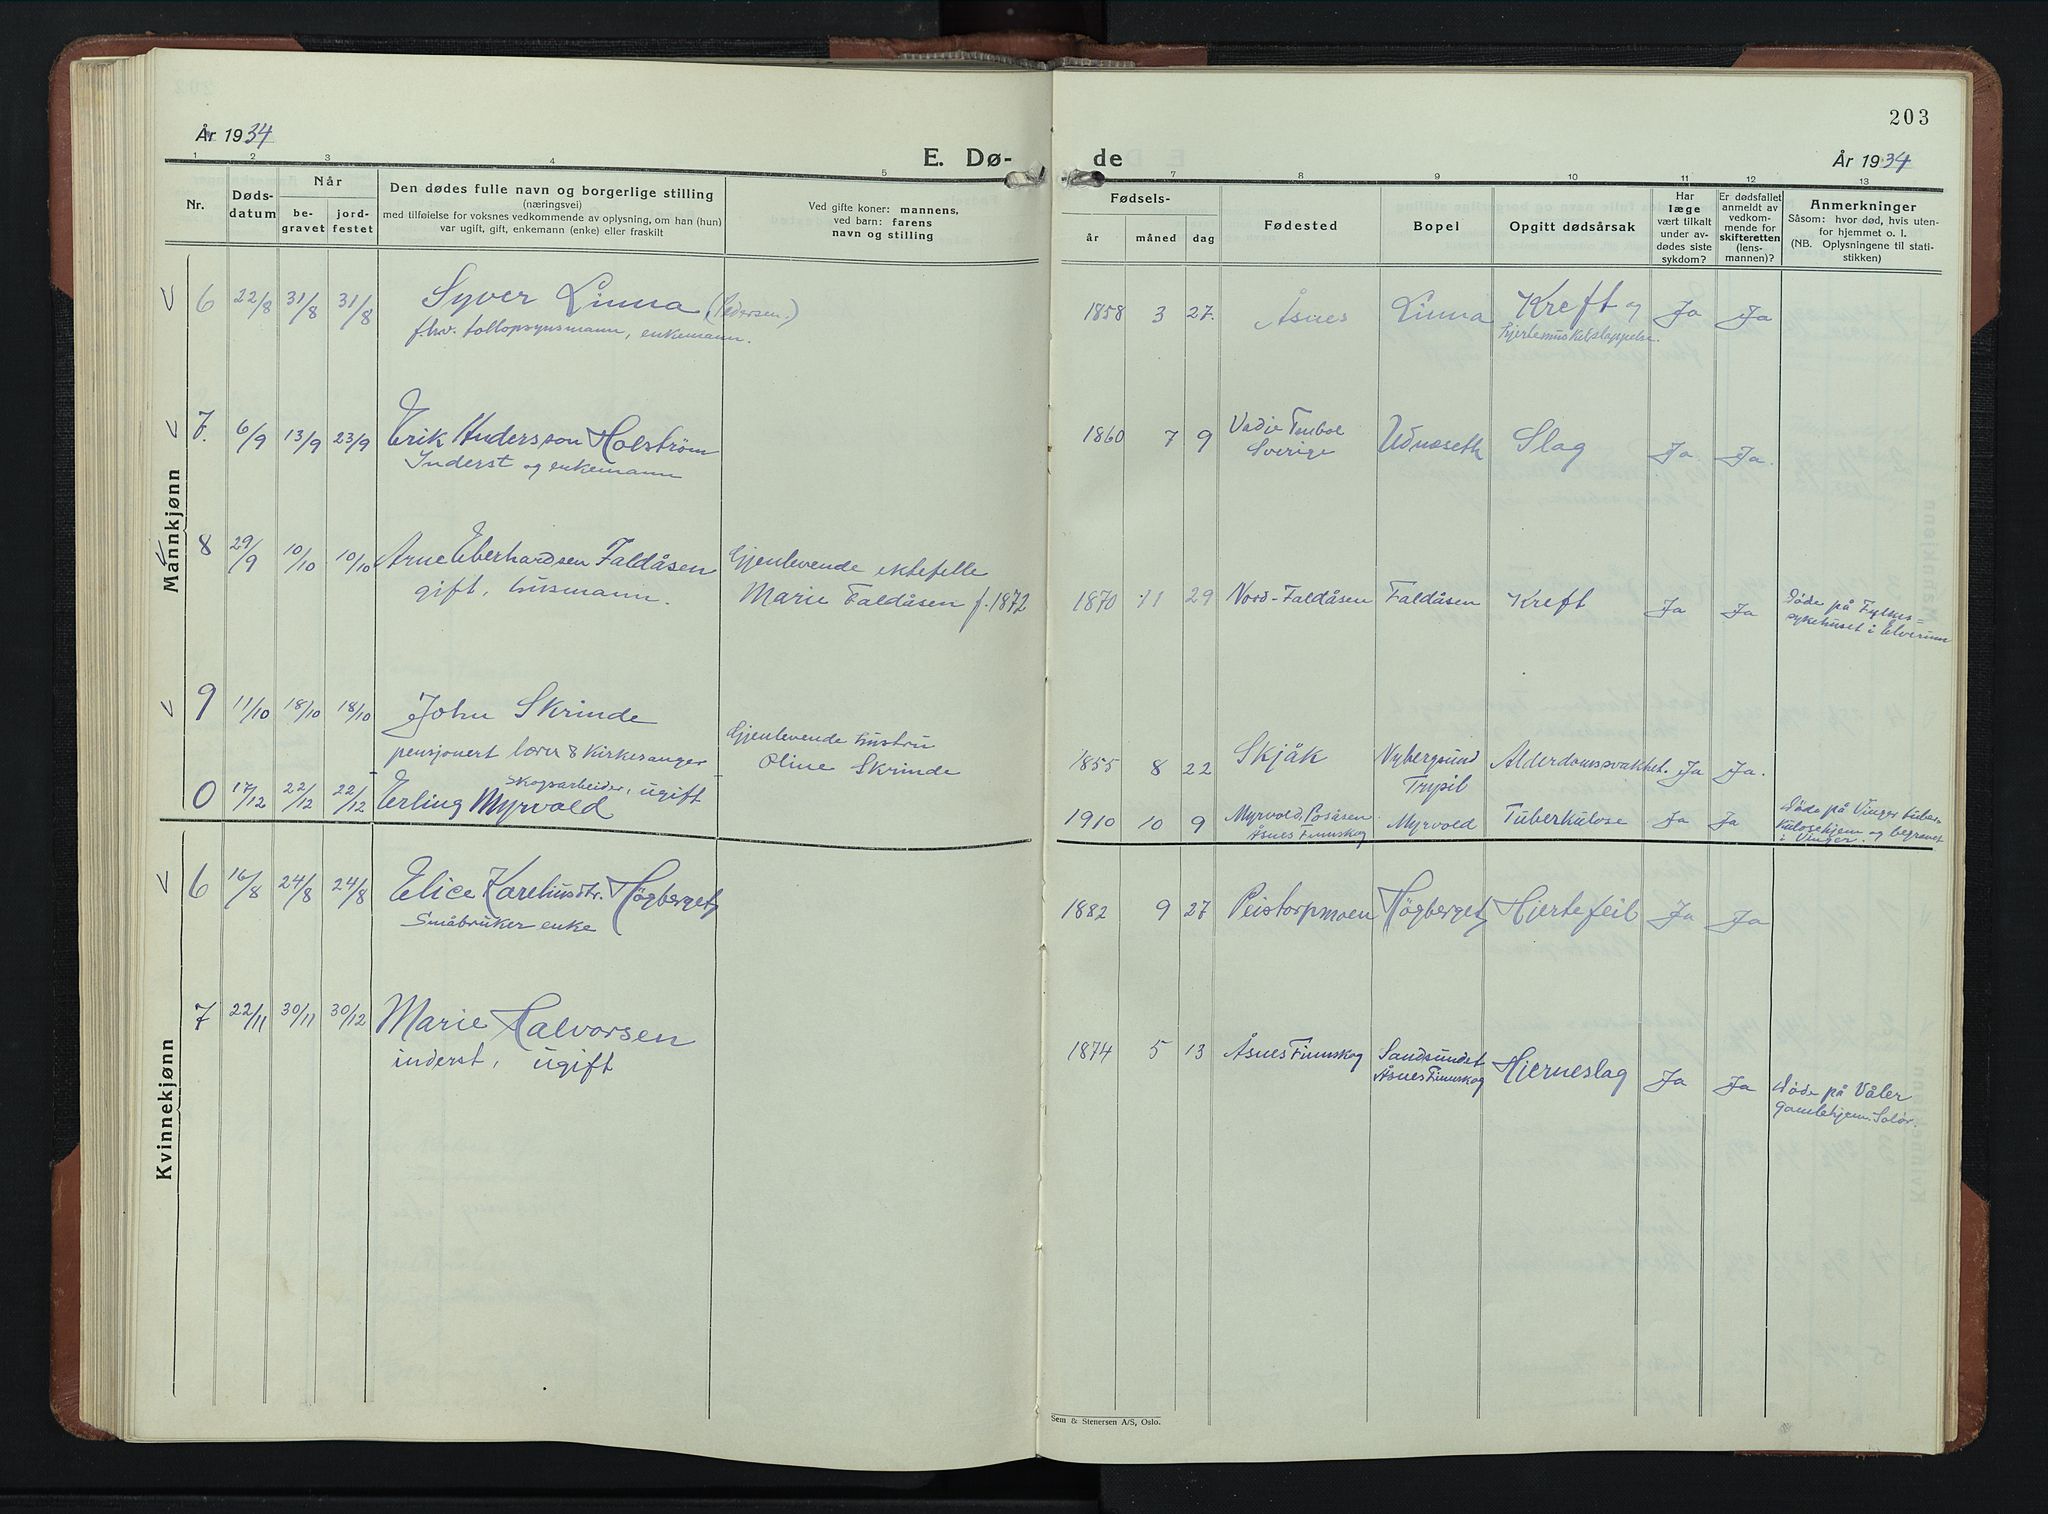 203
År 1934
E. Dø-
de
År 1934
1 2 3 4 5 7 8 9 10 11 12 13
Nr.
Døds-
datum
Når
be-
gravet
jord-
festet
Den dødes fulle navn og borgerlige stilling
(næringsvei)
med tilføielse for voksnes vedkommende av oplysning, om han (hun)
var ugift, gift, enkemann (enke) eller fraskilt
Ved gifte koner: mannens,
ved barn: farens
navn og stilling
Fødsels-
år
måned
dag
Fødested
Bopel
Opgitt dødsårsak
Har
læge
vært tilkalt
under av-
dødes siste
sykdom?
Er dødsfallet
anmeldt av
vedkom-
mende for
skifteretten
(lens-
mannen)?
Anmerkninger
Såsom: hvor død, hvis uten-
for hjemmet o. l.
(NB. Oplysningene til stati-
stikken)
Mannkjønn
6 22/8 31/8 31/8 Syver Linna (Pedersen.)
fhv. tollopsynsmann, enkemann.
1858 3 27. Åsnes Linna Kreft og
hjertemuskelslappelse.
Ja Ja
7. 6/9 13/9 23/9 Erik Andersson Holström
Inderst og enkemann
1860 7 9
Sverige
Udnæseth Slag Ja. Ja.
8 29/9 10/10 10/10 Arne Eberhardsen Faldåsen
gift, husmann.
Gjenlevende ektefelle
Marie Faldåsen f. 1872
1870 11 29 Nord-Faldåsen Faldåsen Kreft Ja Ja
Døde på Fylkes-
sykehuset i Elverum
9 11/10 18/10 18/10 John Skrinde
pensjonert lærer & kirkesanger
Gjenlevende hustru
Oline Skrinde
1855 8 22 Skjåk Nybergsund
Trysil
Alderdomssvakhet. Ja Ja.
0 17/12 22/12 22/12 Erling Myrvold
Skogsarbeider, ugift
1910 10 9 Myrvold, Posåsen
Åsnes Finnskog
Myrvold Tuberkulose Ja Ja
Døde på Vinger tuber-
kulosehjem og begravet
i Vinger.
Kvinnekjønn
6 16/8 24/8 24/8 Elice Kareliusdtr. Högberget
Småbruker enke
1882 9 27 Peistorpmoen Högberget Hjertefeil Ja Ja
7 22/11 30/11 30/12 Marie Halvorsen
inderst, ugift
1874 5 13 Åsnes Finnskog Sandsundet
Åsnes Finnskog
Hjerneslag Ja Ja
Døde på Våler
gamlehjem. Solør.
Sem & Stenersen A/S, Oslo.